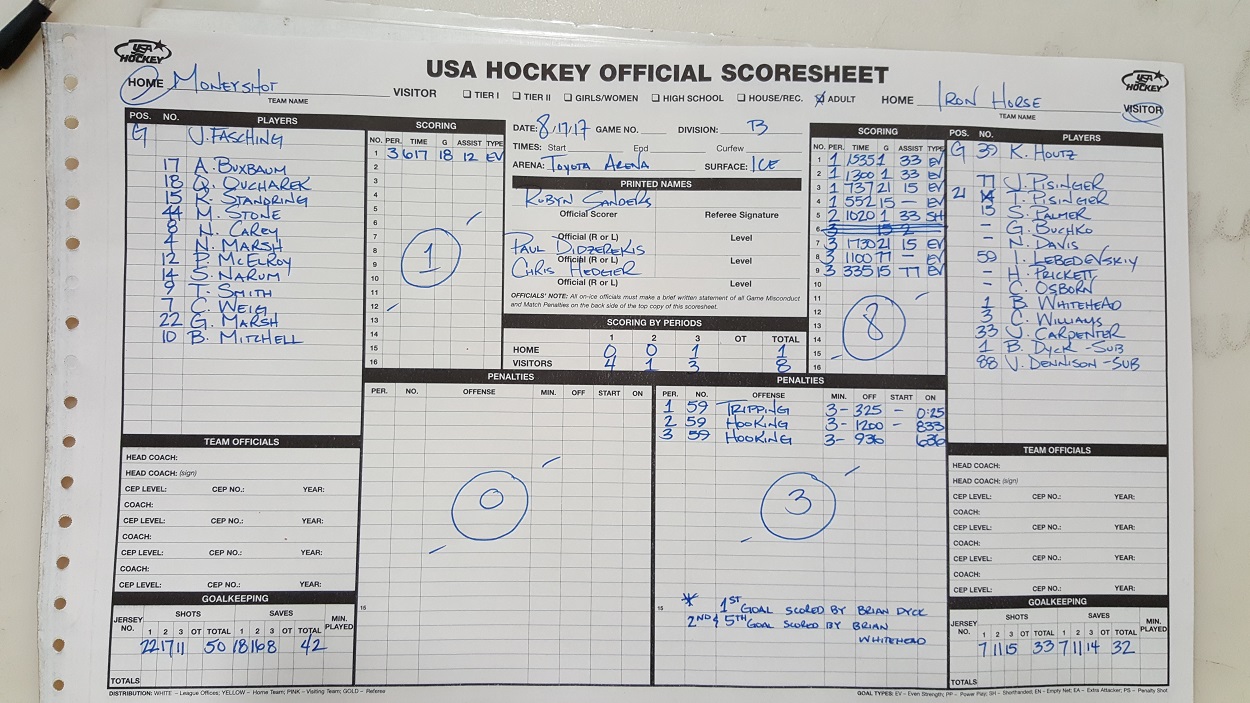 USA HOCKEY
USA HOCKEY OFFICIAL SCORESHEET
USA HOCKEY
HOME MONEYSHOT VISITOR
TEAM NAME
TIER I TIER II GIRLS/WOMEN HIGH SCHOOL HOUSE/REC. ADULT
HOME IRON HORSE VISITOR
TEAM NAME
POS. NO. PLAYERS
G J. FASCHING
17 A. BUXBAUM
18 Q. OUCHAREK
15 K. STANDRING
44 M. STONE
8 N. CAREY
4 N. MARSH
12 P. MCELROY
14 S. NARUM
9 T. SMITH
7 C. WEIG
22 G. MARSH
10 B. MITCHELL
SCORING
NO. PER. TIME G ASSIST TYPE
1 3 617 18 12 EV
2
3
4
5
6
7
8
9
10
11
12
13
14
15
16
1
DATE: 8/17/17 GAME NO. DIVISION: B
TIMES: Start End Curfew
ARENA: TOYOTA ARENA SURFACE: ICE
PRINTED NAMES
ROBYN SANDERS
Official Scorer Referee Signature
Official (R or L) Level
PAUL DIDZEREKIS
Official (R or L) Level
CHRIS HEDGER
Official (R or L) Level
OFFICIALS' NOTE: All on-ice officials must make a brief written statement of all Game Misconduct
and Match Penalties on the back side of the top copy of this scoresheet.
SCORING BY PERIODS
1 2 3 OT TOTAL
HOME 0 0 1 1
VISITORS 4 1 3 8
SCORING
NO. PER. TIME G ASSIST TYPE
1 1 1535 1 33 EV
2 1 1300 1 33 EV
3 1 737 21 15 EV
4 1 552 15 - EV
5 2 1020 1 33 SH
6 3 15 2
7 3 1730 21 15 EV
8 3 1100 77 - EV
9 3 335 15 77 EV
10
11
12
13
14
15
16
8
POS. NO. PLAYERS
G 39 K. HOUTZ
77 J. PISINGER
21 T. PISINGER
15 S. PALMER
- G. BUCHKO
- N. DAVIS
59 I. LEBEDEVSKIY
- H. PRICKETT
- C. OSBORN
1 B. WHITEHEAD
3 C. WILLIAMS
33 J. CARPENTER
1 B. DYCK - SUB
88 J. DENNISON - SUB
PENALTIES
PER. NO. OFFENSE MIN. OFF START ON
0
15
PENALTIES
PER. NO. OFFENSE MIN. OFF START ON
1 59 TRIPPING 3- 325 - 0:25
2 59 HOOKING 3- 1200 - 833
3 59 HOOKING 3- 936 636
3
15
* 1ST GOAL SCORED BY BRIAN DYCK
2ND & 5TH GOAL SCORED BY BRIAN
WHITEHEAD
TEAM OFFICIALS
HEAD COACH:
HEAD COACH: (sign)
CEP LEVEL: CEP NO.: YEAR:
COACH:
CEP LEVEL: CEP NO.: YEAR:
COACH:
CEP LEVEL: CEP NO.: YEAR:
COACH:
CEP LEVEL: CEP NO.: YEAR:
GOALKEEPING
JERSEY NO. SHOTS SAVES MIN. PLAYED
1 2 3 OT TOTAL 1 2 3 OT TOTAL
22 17 11 50 18 16 8 42
TOTALS
TEAM OFFICIALS
HEAD COACH:
HEAD COACH: (sign)
CEP LEVEL: CEP NO.: YEAR:
COACH:
CEP LEVEL: CEP NO.: YEAR:
COACH:
CEP LEVEL: CEP NO.: YEAR:
COACH:
CEP LEVEL: CEP NO.: YEAR:
GOALKEEPING
JERSEY NO. SHOTS SAVES MIN. PLAYED
1 2 3 OT TOTAL 1 2 3 OT TOTAL
7 11 15 33 7 11 14 32
TOTALS
DISTRIBUTION: WHITE – League Offices; YELLOW – Home Team; PINK – Visiting Team; GOLD – Referee
GOAL TYPES: EV – Even Strength; PP – Power Play; SH – Shorthanded; EN – Empty Net; EA – Extra Attacker; PS – Penalty Shot